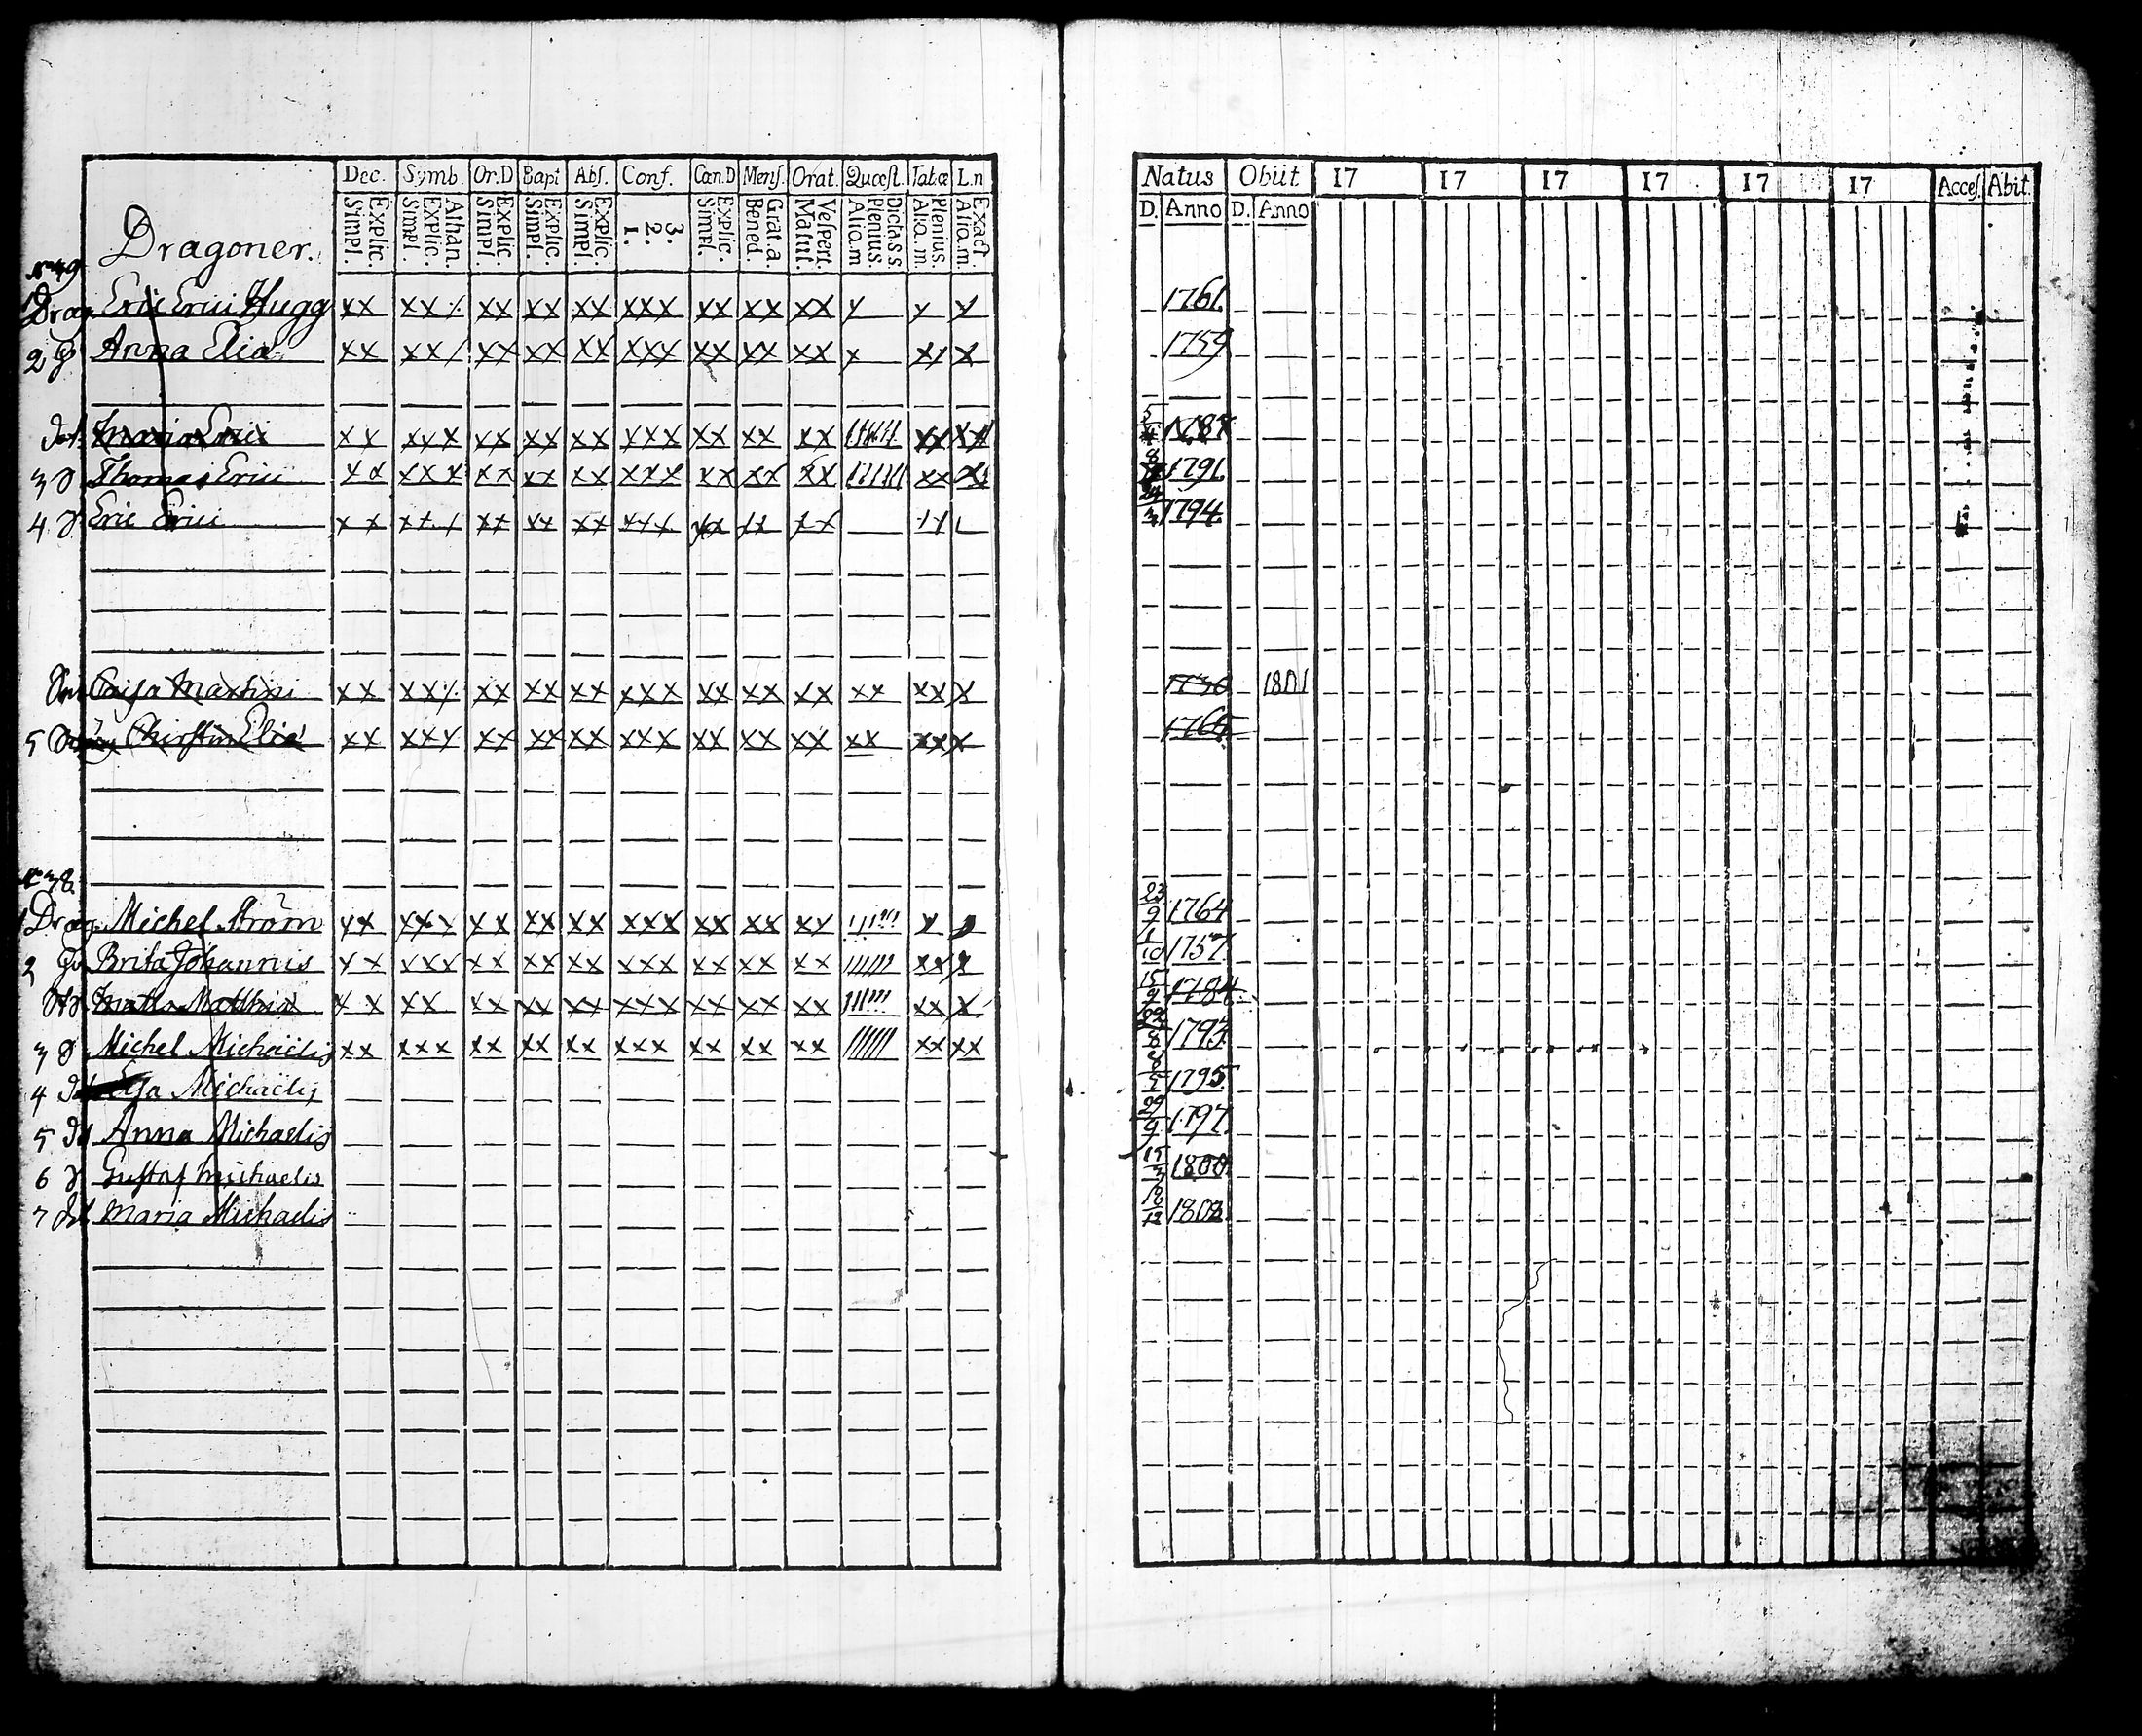 Dec. Symb. Or.D Bapt Abs. Conf. Can.D Mens. Orat. Quæst. Tab.æ L.n
Explic. Simpl. Athan. Explic. Simpl. Explic. Simpl. Explic. Simpl. Explic. Simpl. 3. 2. 1. Explic. Simpl. Grat.a. Bened. Vespert. Matut. Dicta.s.s. Plenius. Aliq.m Plenius. Aliq.m. Exact. Aliq.m.
Natus Obiit 17 17 17 17 17 17 Acces. Abit.
D. Anno D. Anno
Dragoner.
1 Drag. Eric Erici Hugg xx xx/. xx xx xx xxx xx xx xx x x x 1761.
2 Anna Eliæ xx xx/ xx xx xx xxx xx xx xx x xx x 1759
Dot. Maria Erici xx xxx xx xx xx xxx xx xx xx xx 5/4 1787
3 Thomas Erici xx xxx xx xx xx xxx xx xx xx xx 8 1791.
4 Eric Erici xx xx xx xx xx xxx xx xx 24/3 1794.
Caisa Martini xx xx/. xx xx xx xxx xx xx xx xx xx x 1736 1801
5 Christin Eliæ xx xxx xx xx xx xxx xx xx xx xx xx x 1765
N:o 38.
1 Drag. Michel Ström xx xxx xx xx xx xxx xx xx xx x 23/9 1764
2 Brita Johannis xx xxx xx xx xx xxx xx xx xx xx x 1/10 1757.
xx xx xx xx xx xxx xx xx xx xx x 15/9 1784.
3 Michel Michaëlis xx xxx xx xx xx xxx xx xx xx xx xx 22/8 1793.
4 Michaëlis 1795.
5 Dr Anna Michaelis 29/9 1797.
6 Gustaf Michaelis 15/3 1800.
7 Dr Maria Michaelis 16/12 1802.